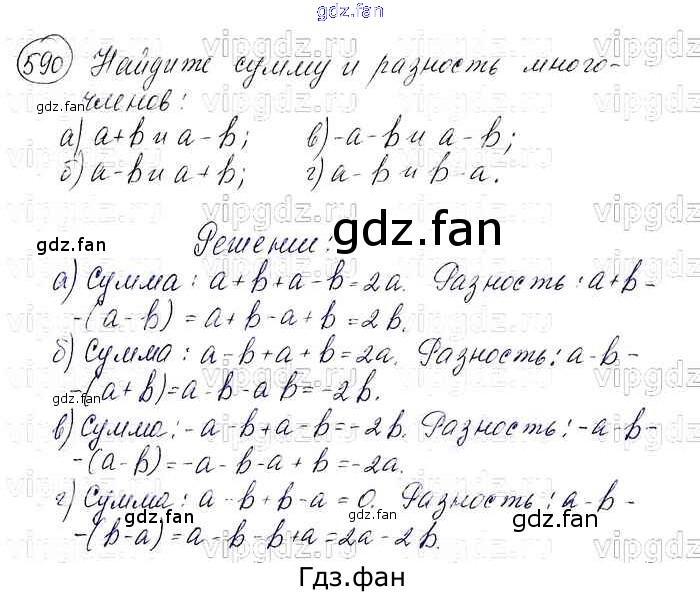 gdz.fan
590 Найдите сумму и разность много-
членов:
а) a+b и a-b; в) -a-b и a-b;
б) a-b и a+b; г) a-b и b-a.
Решении:
а) Сумма: a+b+a-b=2a. Разность: a+b-
-(a-b)=a+b-a+b=2b.
б) Сумма: a-b+a+b=2a. Разность: a-b-
-(a+b)=a-b-a b=-2b.
в) Сумма: -a-b+a-b=-2b. Разность: -a-b-
-(a-b)=-a-b-a+b=-2a.
г) Сумма: a-b+b-a=0. Разность: a-b-
-(b-a)=a-b-b+a=2a-2b.
gdz.fan
gdz.fan
gdz.fan
gdz.fan
gdz.fan
gdz.fan
gdz.fan
gdz.fan
Гдз.фан